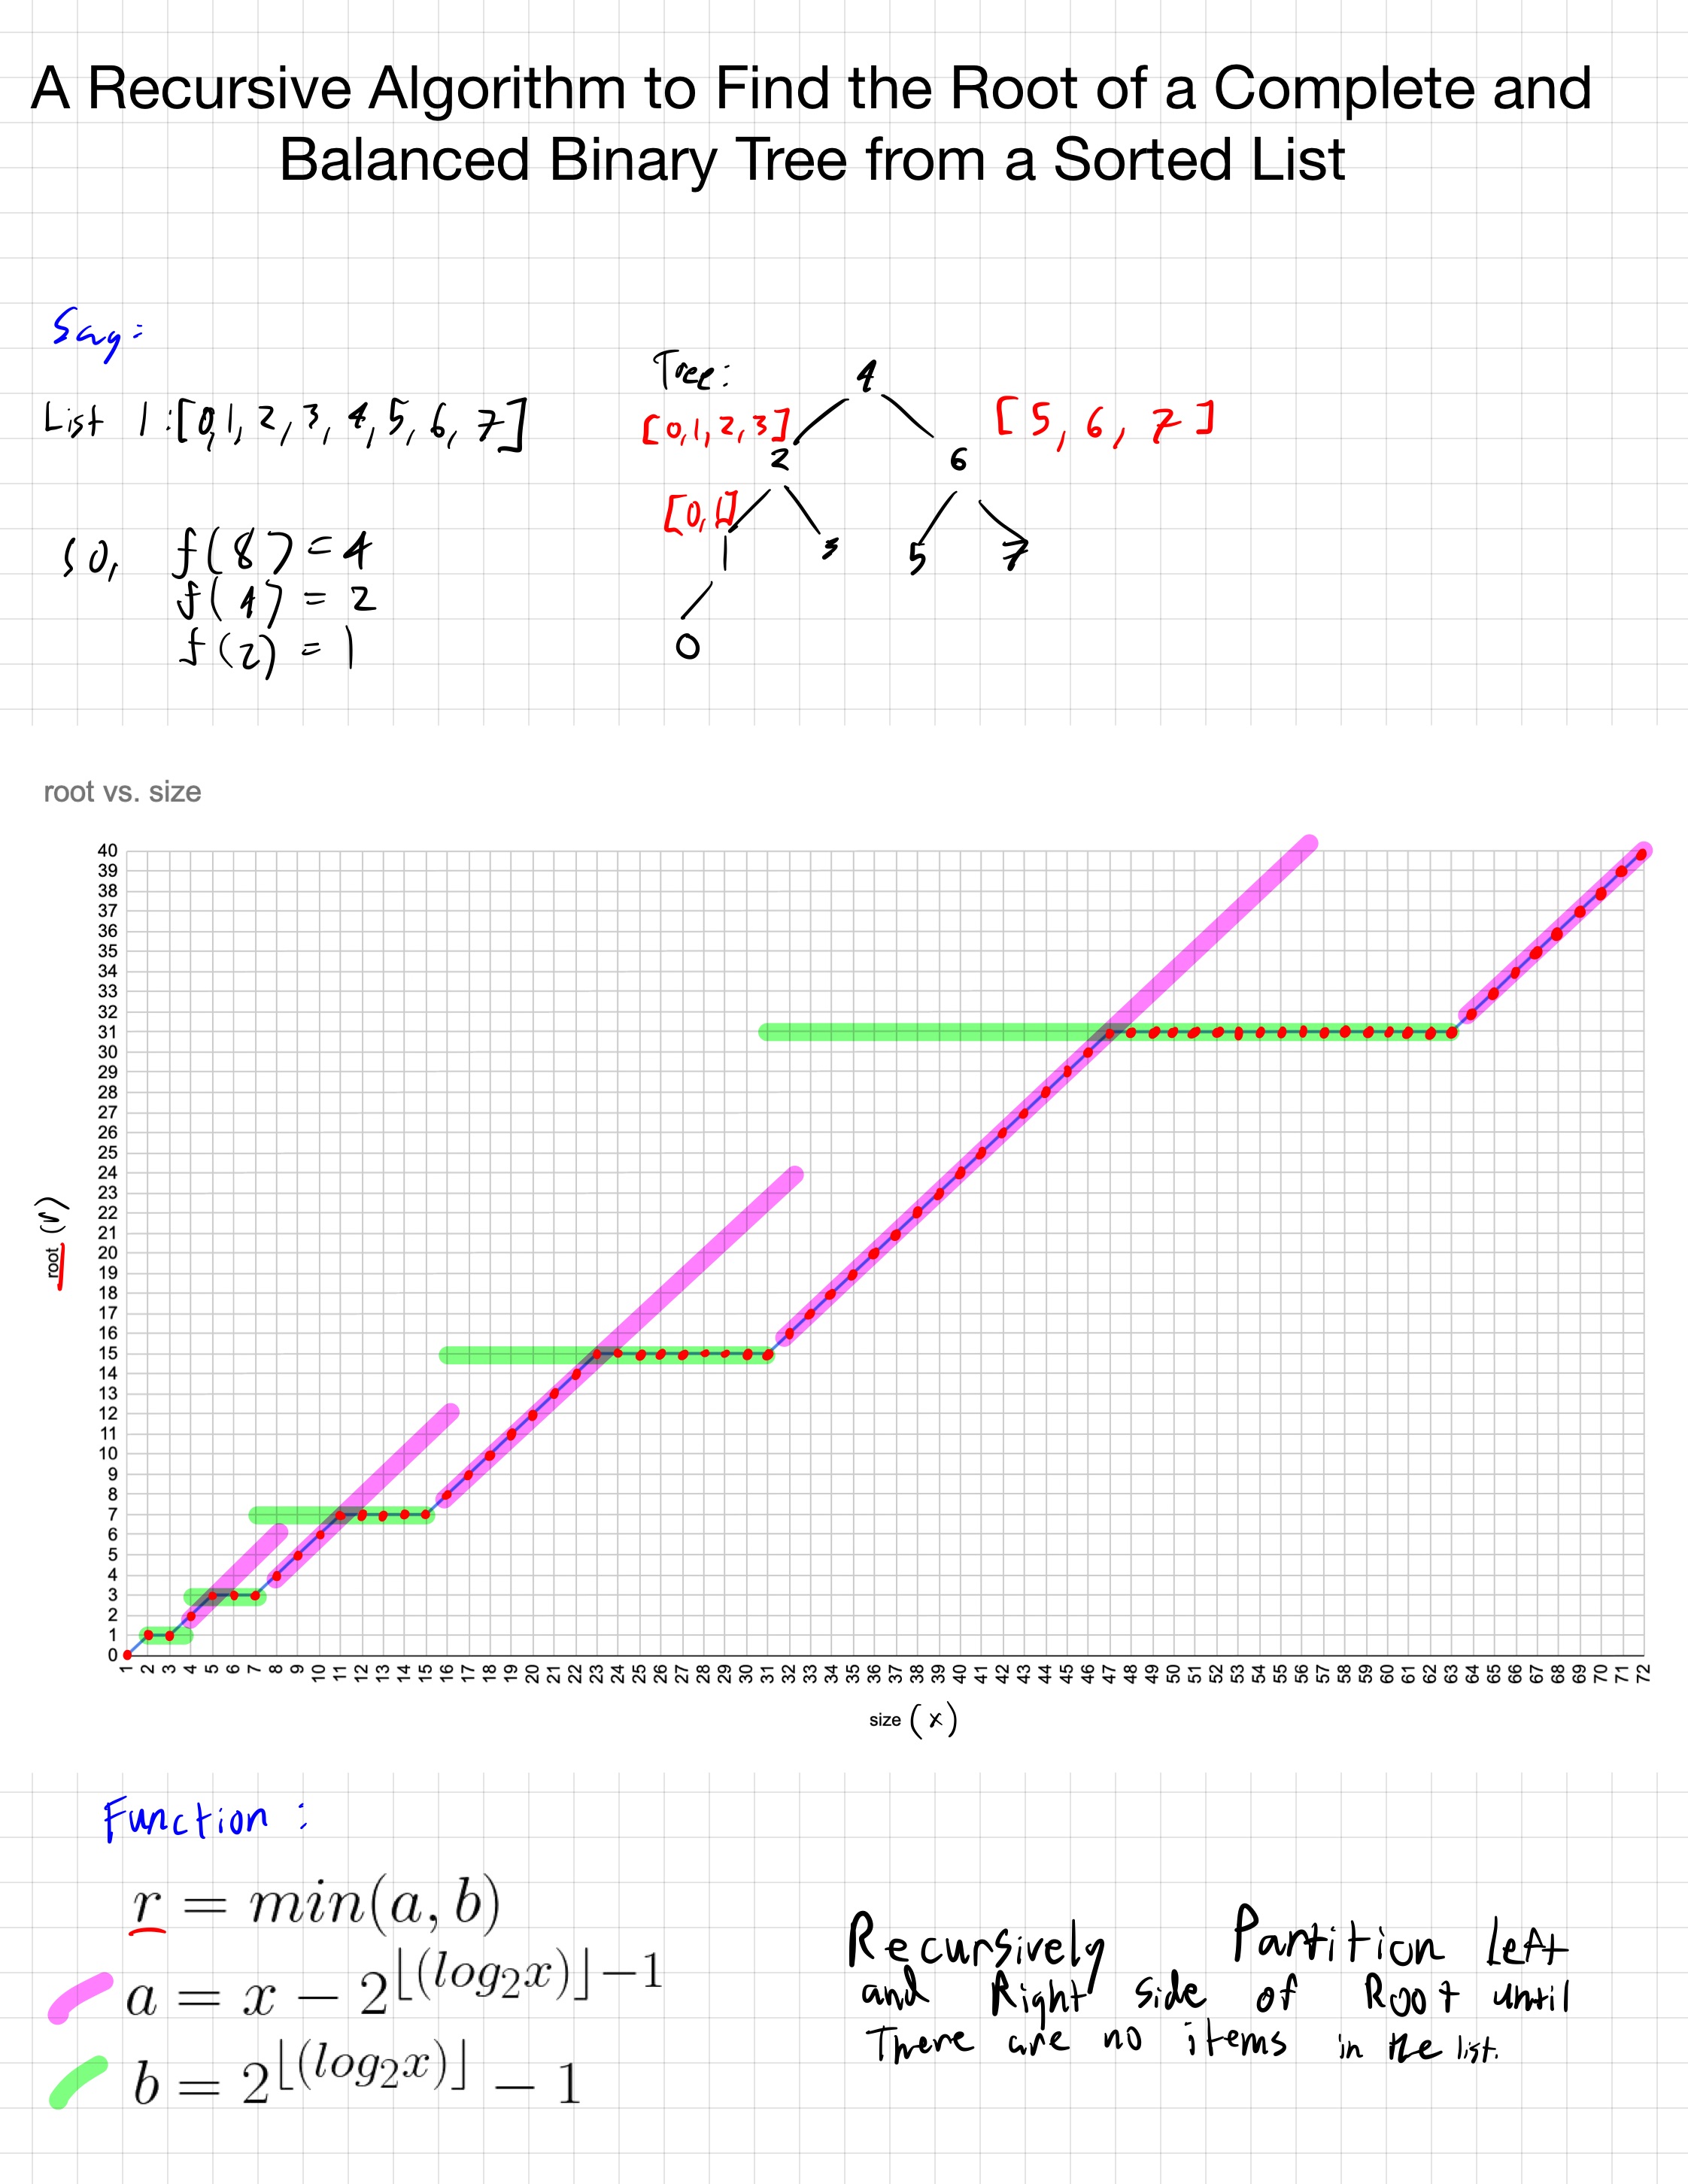 A Recursive Algorithm to Find the Root of a Complete and
Balanced Binary Tree from a Sorted List
Say:
List 1:[0,1,2,3,4,5,6,7]
so, f(8)=4
f(4)=2
f(2)=1
Tree:
4
[0,1,2,3]
[5,6,7]
2 6
[0,1]
1 3 5 7
0
root vs. size
40
39
38
37
36
35
34
33
32
31
30
29
28
27
26
25
24
23
22
21
20
19
18
17
16
15
14
13
12
11
10
9
8
7
6
5
4
3
2
1
0
root (r)
1 2 3 4 5 6 7 8 9 10 11 12 13 14 15 16 17 18 19 20 21 22 23 24 25 26 27 28 29 30 31 32 33 34 35 36 37 38 39 40 41 42 43 44 45 46 47 48 49 50 51 52 53 54 55 56 57 58 59 60 61 62 63 64 65 66 67 68 69 70 71 72
size (x)
Function:
r = min(a, b)
a = x − 2^⌊(log₂x)⌋−1
b = 2^⌊(log₂x)⌋ − 1
Recursively Partition Left
and Right side of Root until
There are no items in the list.